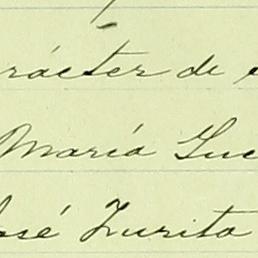 rácter de
María Luc
osé Zurita